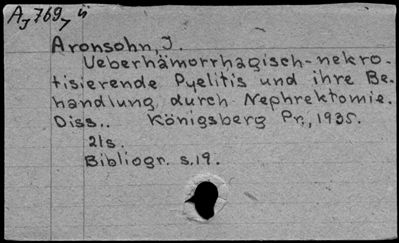 A, 769, ü
Aronsohn, J.
Ueberhämorrhagisch-nekro-
tisierende Pyelitis und ihre Be-
handlung durch Nephrektomie.
Diss.. Königsberg Pr., 1935.
21s.
Bibliogr. s.19.